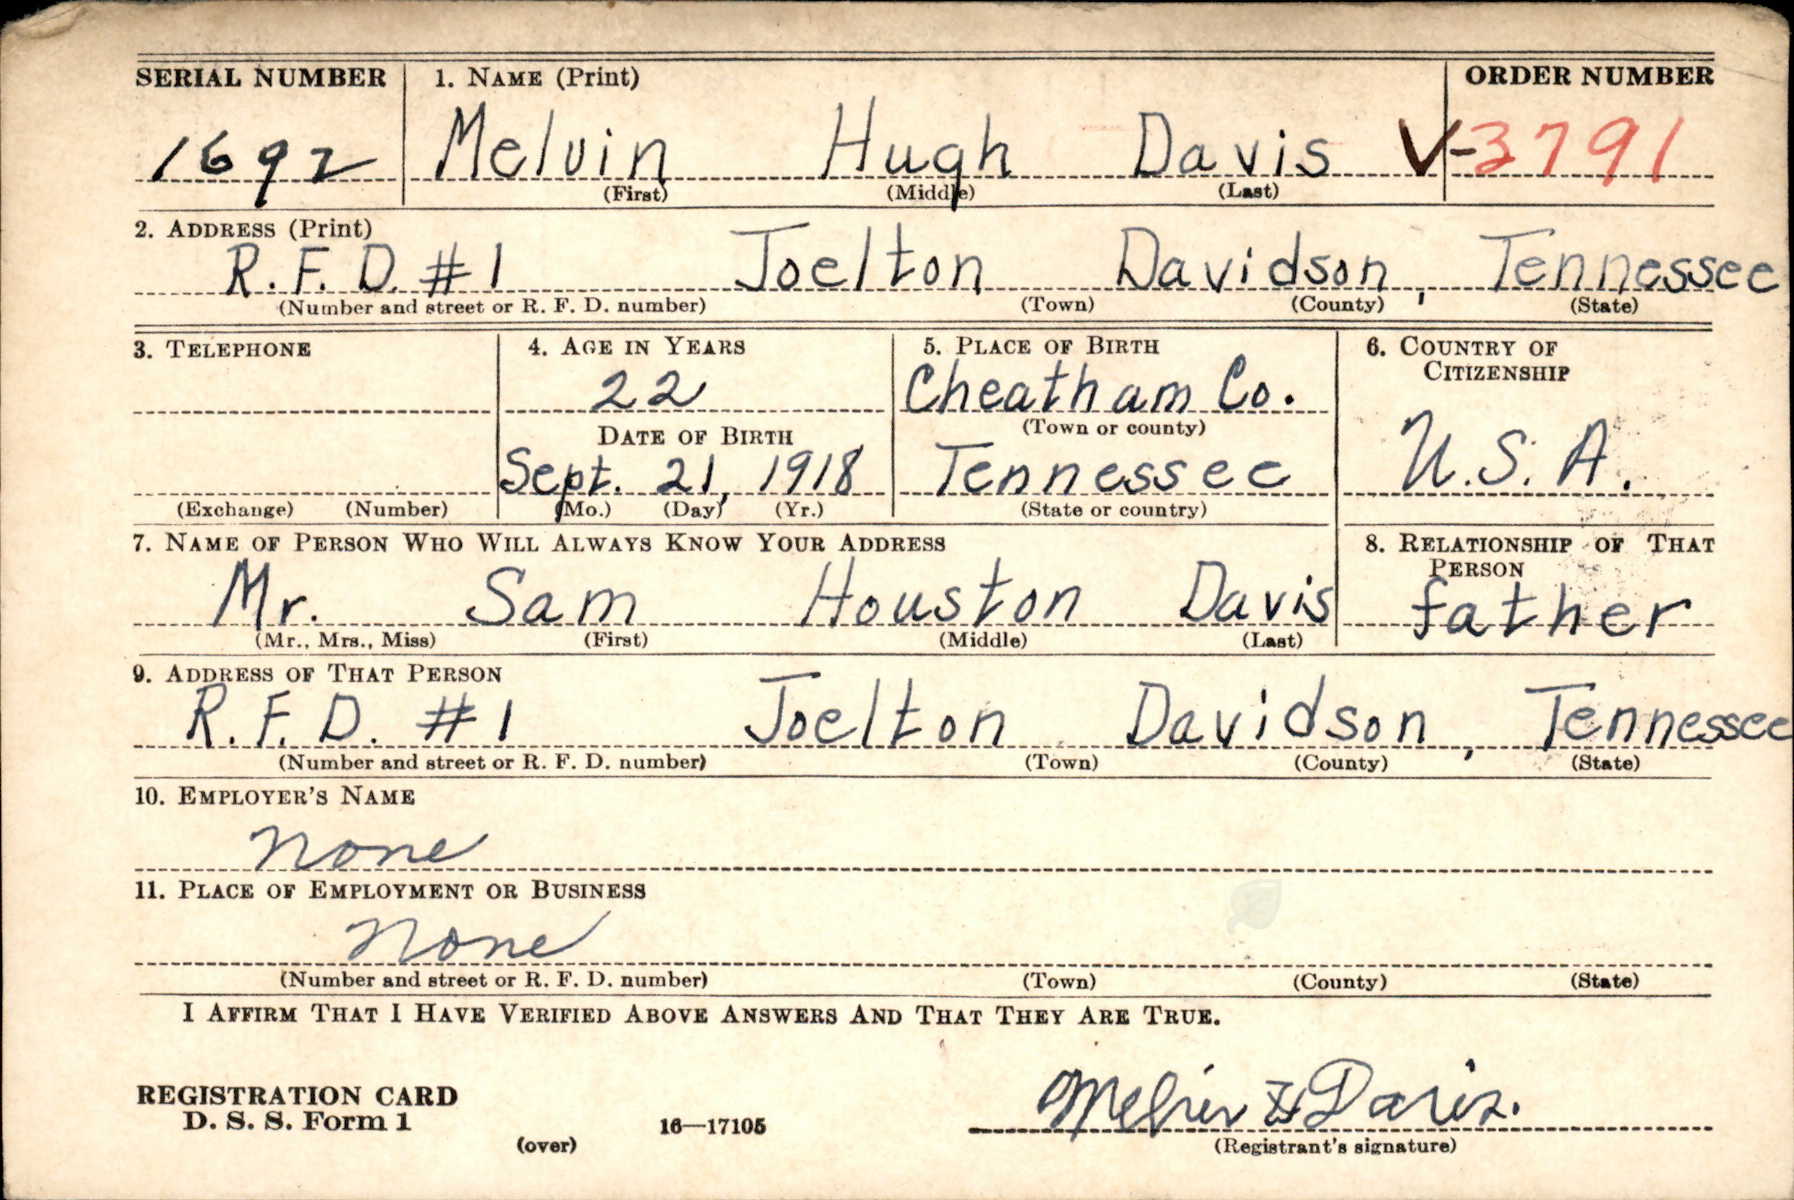 SERIAL NUMBER 1. NAME (Print) ORDER NUMBER
1692 Melvin Hugh Davis V-3791
(First) (Middle) (Last)
2. ADDRESS (Print)
R.F.D. #1 Joelton Davidson, Tennessee
(Number and street or R. F. D. number) (Town) (County) (State)
3. TELEPHONE 4. AGE IN YEARS 5. PLACE OF BIRTH 6. COUNTRY OF
CITIZENSHIP
22 Cheatham Co.
(Town or county)
DATE OF BIRTH
Sept. 21, 1918 Tennessee U.S.A.
(Exchange) (Number) (Mo.) (Day) (Yr.) (State or country)
7. NAME OF PERSON WHO WILL ALWAYS KNOW YOUR ADDRESS 8. RELATIONSHIP OF THAT
PERSON
Mr. Sam Houston Davis father
(Mr., Mrs., Miss) (First) (Middle) (Last)
9. ADDRESS OF THAT PERSON
R.F.D. #1 Joelton Davidson, Tennessee
(Number and street or R. F. D. number) (Town) (County) (State)
10. EMPLOYER'S NAME
None
11. PLACE OF EMPLOYMENT OR BUSINESS
None
(Number and street or R. F. D. number) (Town) (County) (State)
I AFFIRM THAT I HAVE VERIFIED ABOVE ANSWERS AND THAT THEY ARE TRUE.
REGISTRATION CARD
D. S. S. Form 1
(over) 16—17105
Melvin H Davis.
(Registrant's signature)